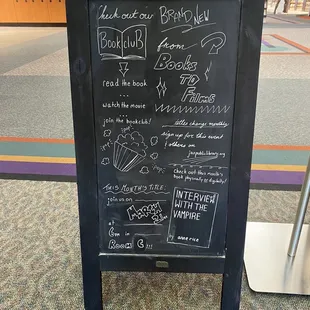 Check out our
BRAND NEW
Book cluB
from
Books
TO
Films
read the book
...
watch the movie
...
join the bookclub!
titles change monthly
sign up for this event
& others on
Check out this month's
book physically or digitally!
THIS MONTH'S TITLE:
join us on
March
at 6pm in
Room C!!!
INTERVIEW
WITH THE
VAMPIRE
anne rice